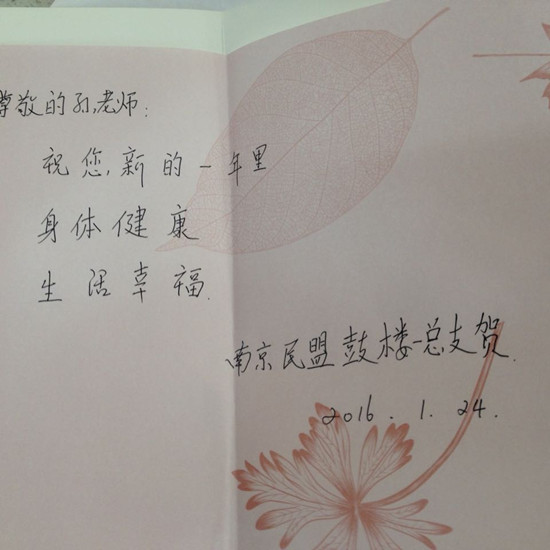 尊敬的孙老师:
祝您,新的一年里
身体健康
生活幸福.
南京民盟鼓楼一总支贺.
2016.1.24.